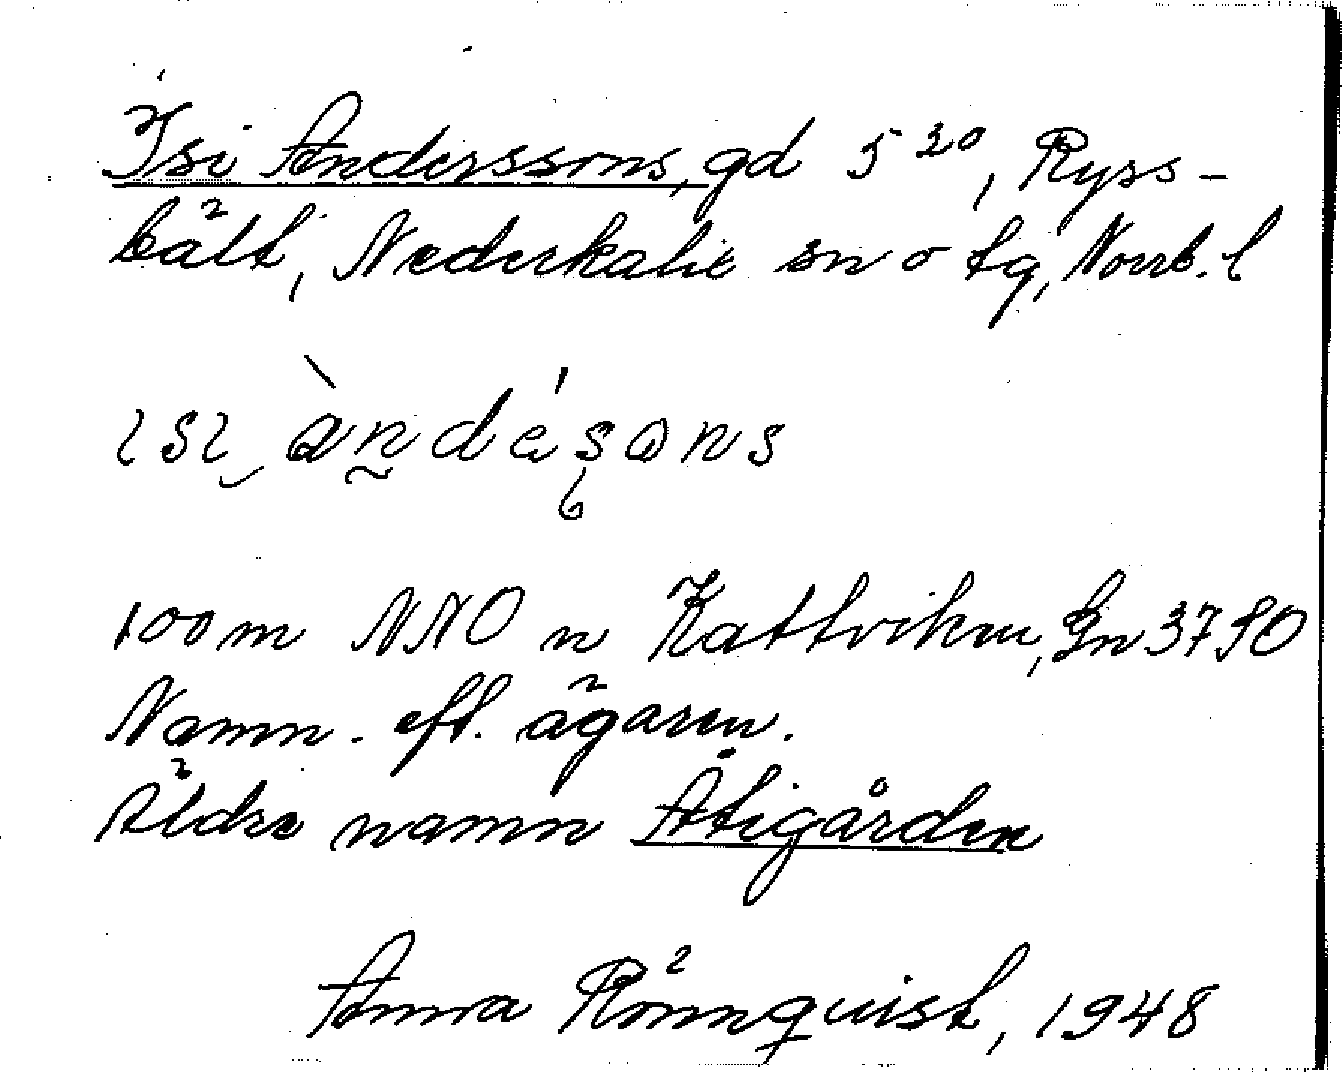 Isi Anderssons, gd 5²⁰, Ryss-
bält, Nederkalix sn o tg, Norrb. l
ɩsɩ àndésɑns
100 m NNO n Kattviken, Gn 3790
Namn. eft. ägaren.
Äldre namn Åtigården
Anna Rönnquist, 1948